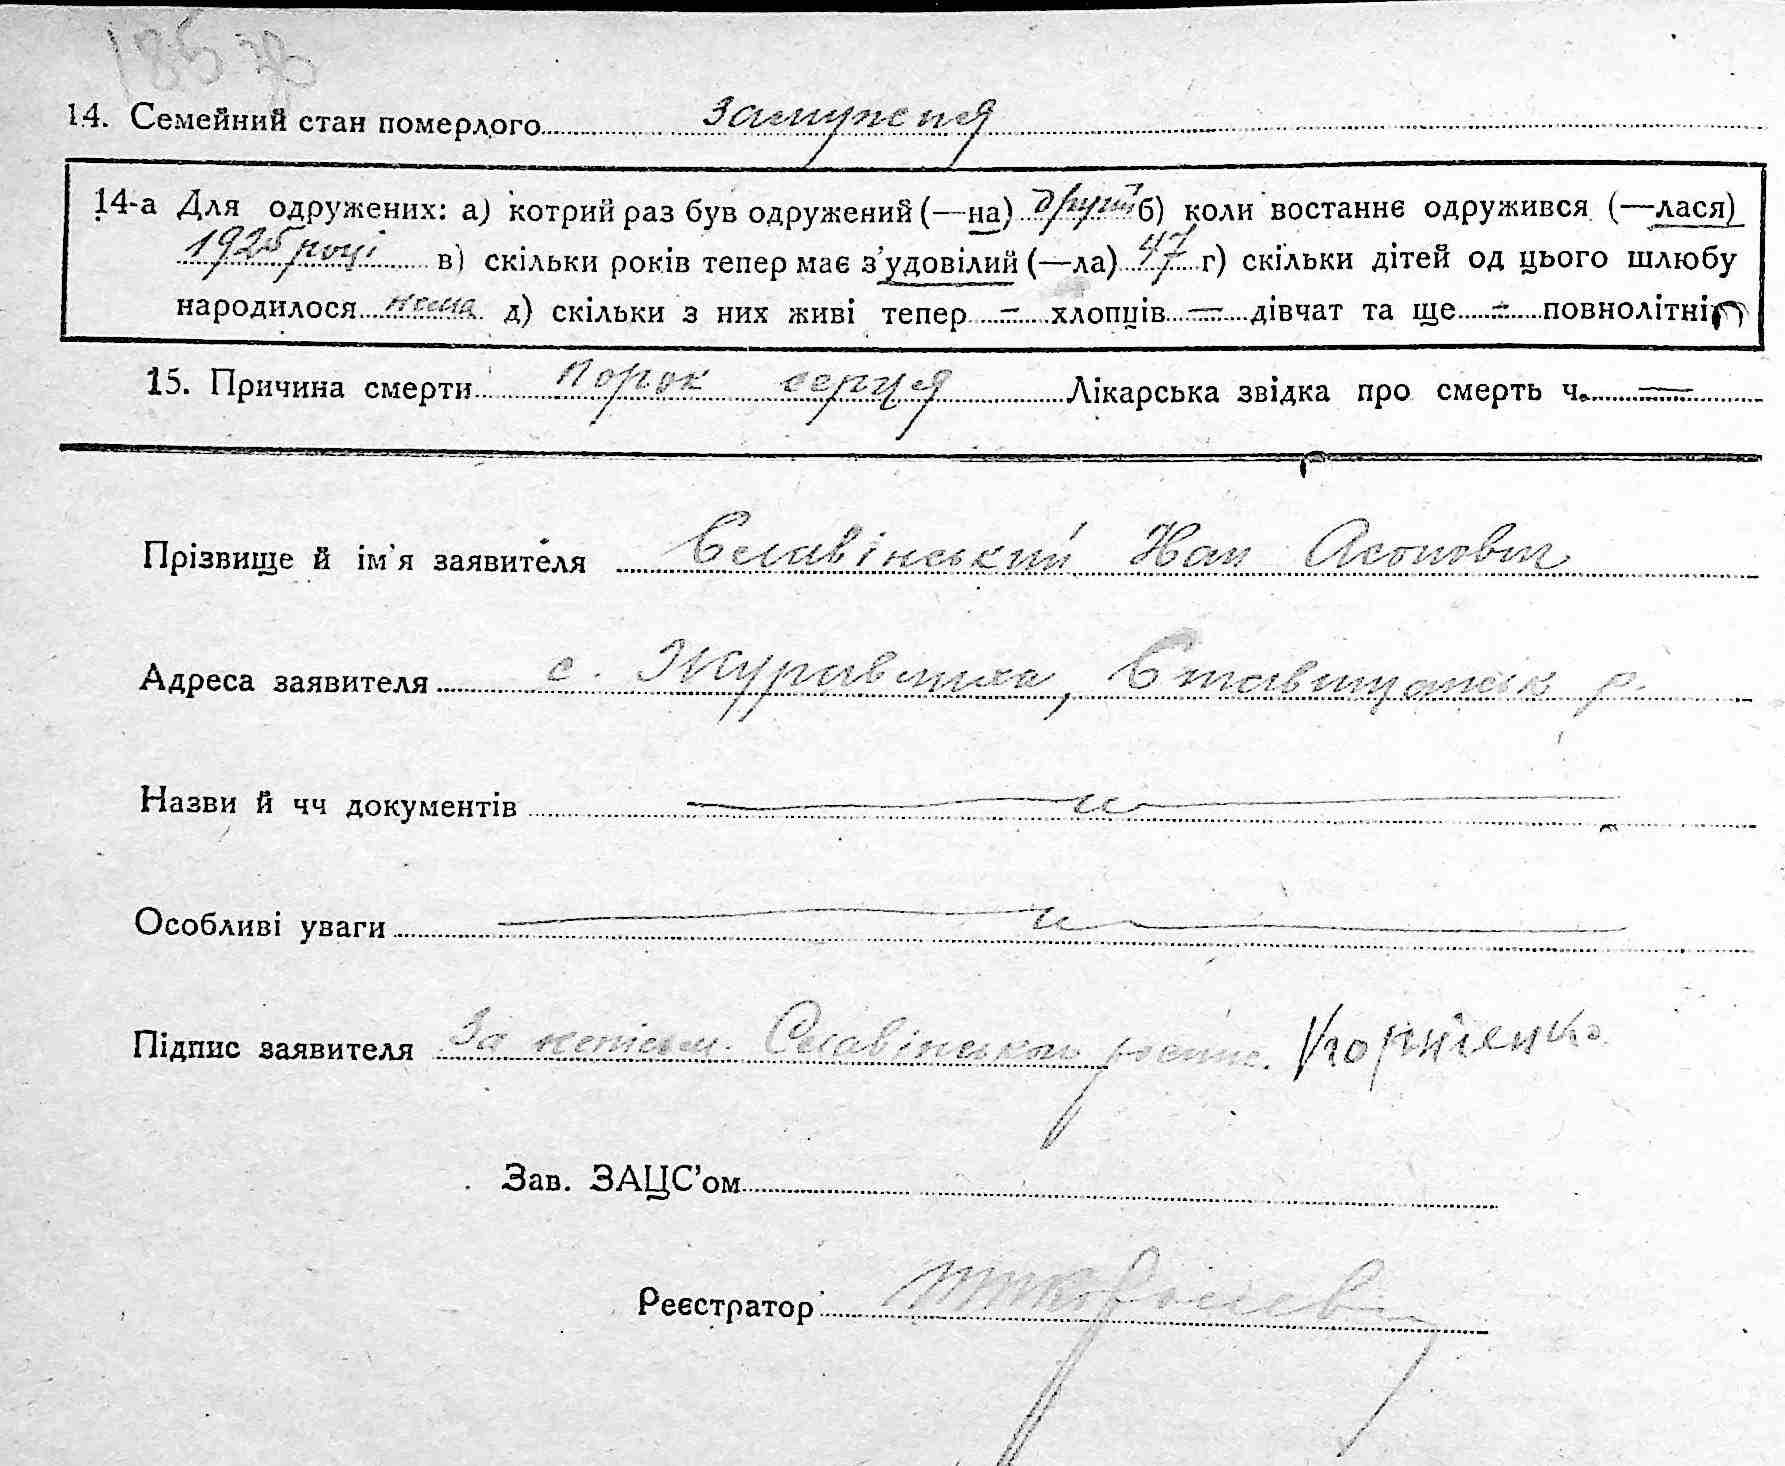 14. Семейний стан померлого замужепя
14-а Для одружених: а) котрий раз був одружений (—на) другий б) коли востаннє одружився (—лася)
1925 році в) скільки років тепер має з’удовілий (—ла) 47 г) скільки дітей од цього шлюбу
народилося нема д) скільки з них живі тепер — хлопців — дівчат та ще — повнолітніх
15. Причина смерти порок серця Лікарська звідка про смерть ч. —
Прізвище й ім’я заявителя Славінський
Адреса заявителя с. Журавлиха, Ставищанськ р.
Назви й чч документів
Особливі уваги
Підпис заявителя За Славінськог роспис. Корнієнко
Зав. ЗАЦС’ом
Реєстратор